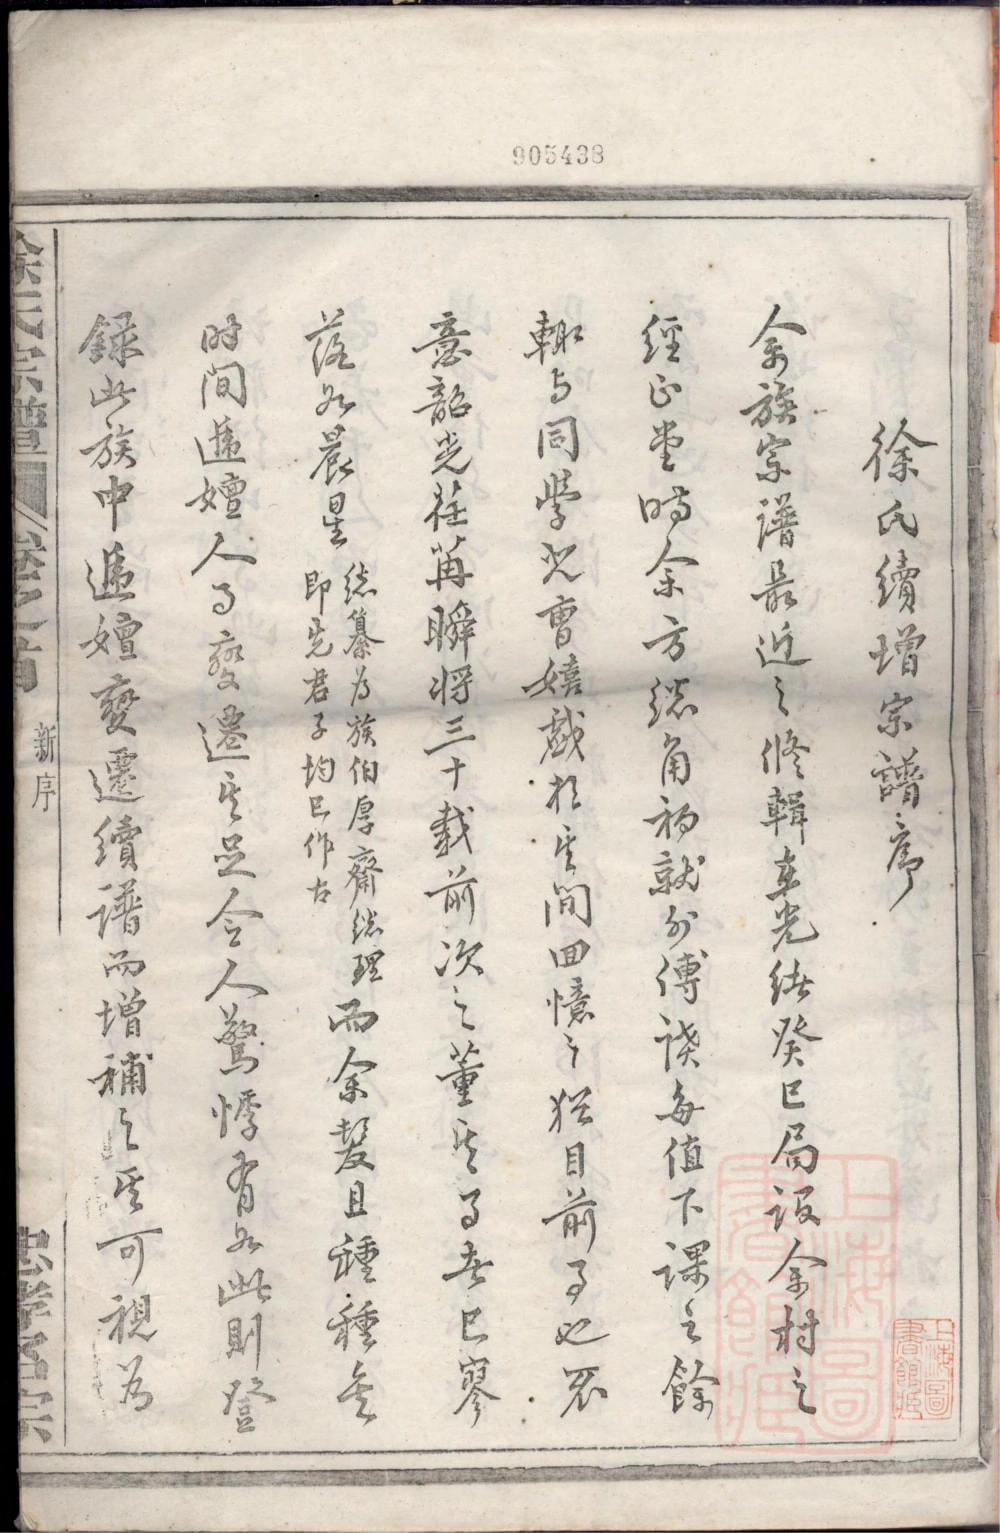 905438
徐氏續增宗譜序
余族宗譜最近之修輯在光緒癸巳局設余村之
經正堂時余方總角初就外傅讀每值下課之餘
輒与同學兒曹嬉戲於其間回憶之猶目前事也不
意韶光荏苒瞬將三十載前次之董其事者已寥
落如晨星
總纂为族伯厚齋總理
即先君子均已作古
而余髮且種種矣
时间遞嬗人事變遷其足令人驚悸有如此則登
録此族中遞嬗變遷續譜而增補之其可視为
徐氏宗譜
卷之首
新序
忠孝名宗
上海圖書館藏
上海圖書館藏